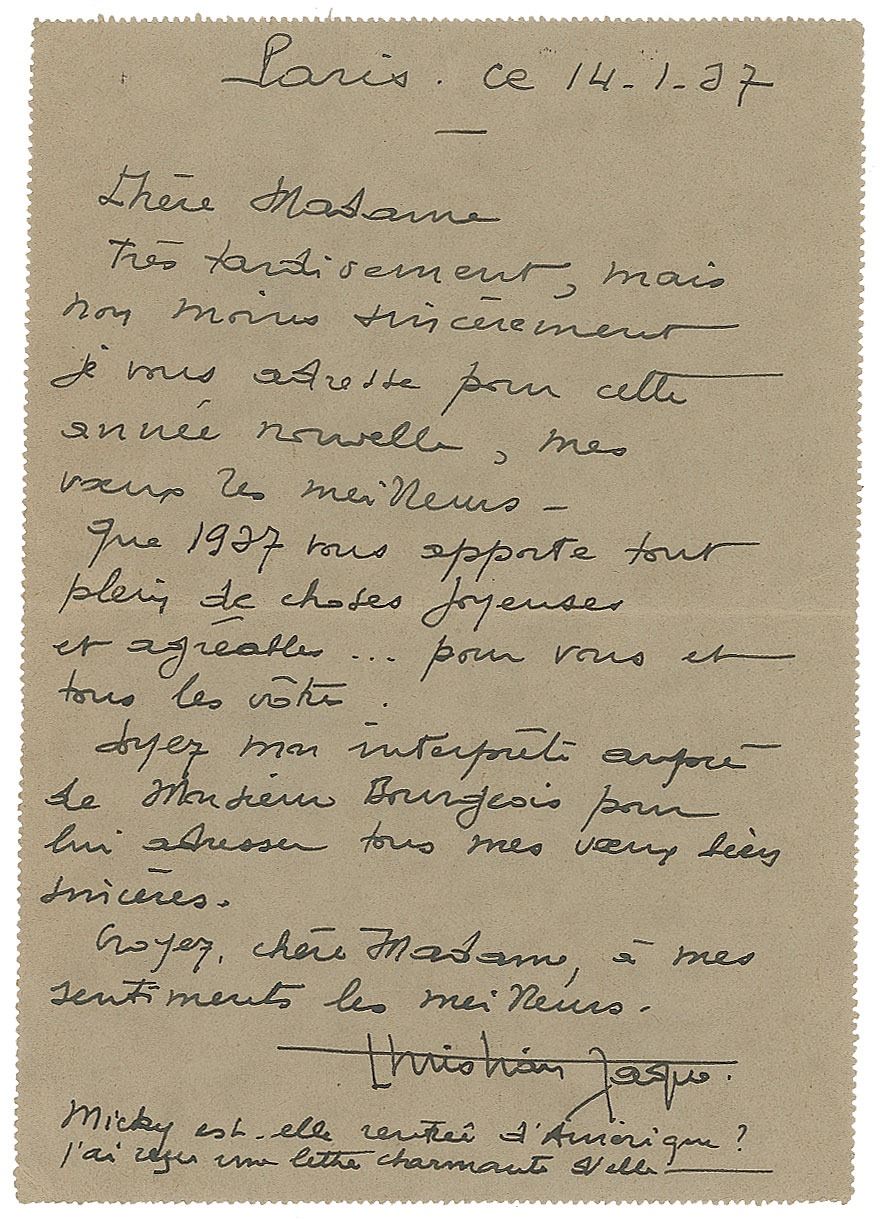 Paris. ce 14-1-37
Chère Madame
Très tardivement, mais
non moins sincèrement
je vous adresse pour cette
année nouvelle, mes
vœux les meilleurs -
Que 1937 vous apporte tout
plein de choses joyeuses
et agréables ... pour vous et
tous les vôtres.
Soyez mon interprète auprès
de Monsieur Bourgeois pour
lui adresser tous mes vœux bien
sincères.
Croyez, chère Madame, à mes
sentiments les meilleurs.
Christian Jaque.
Micky est-elle rentrée d'Amérique ?
J'ai reçu une lettre charmante d'elle